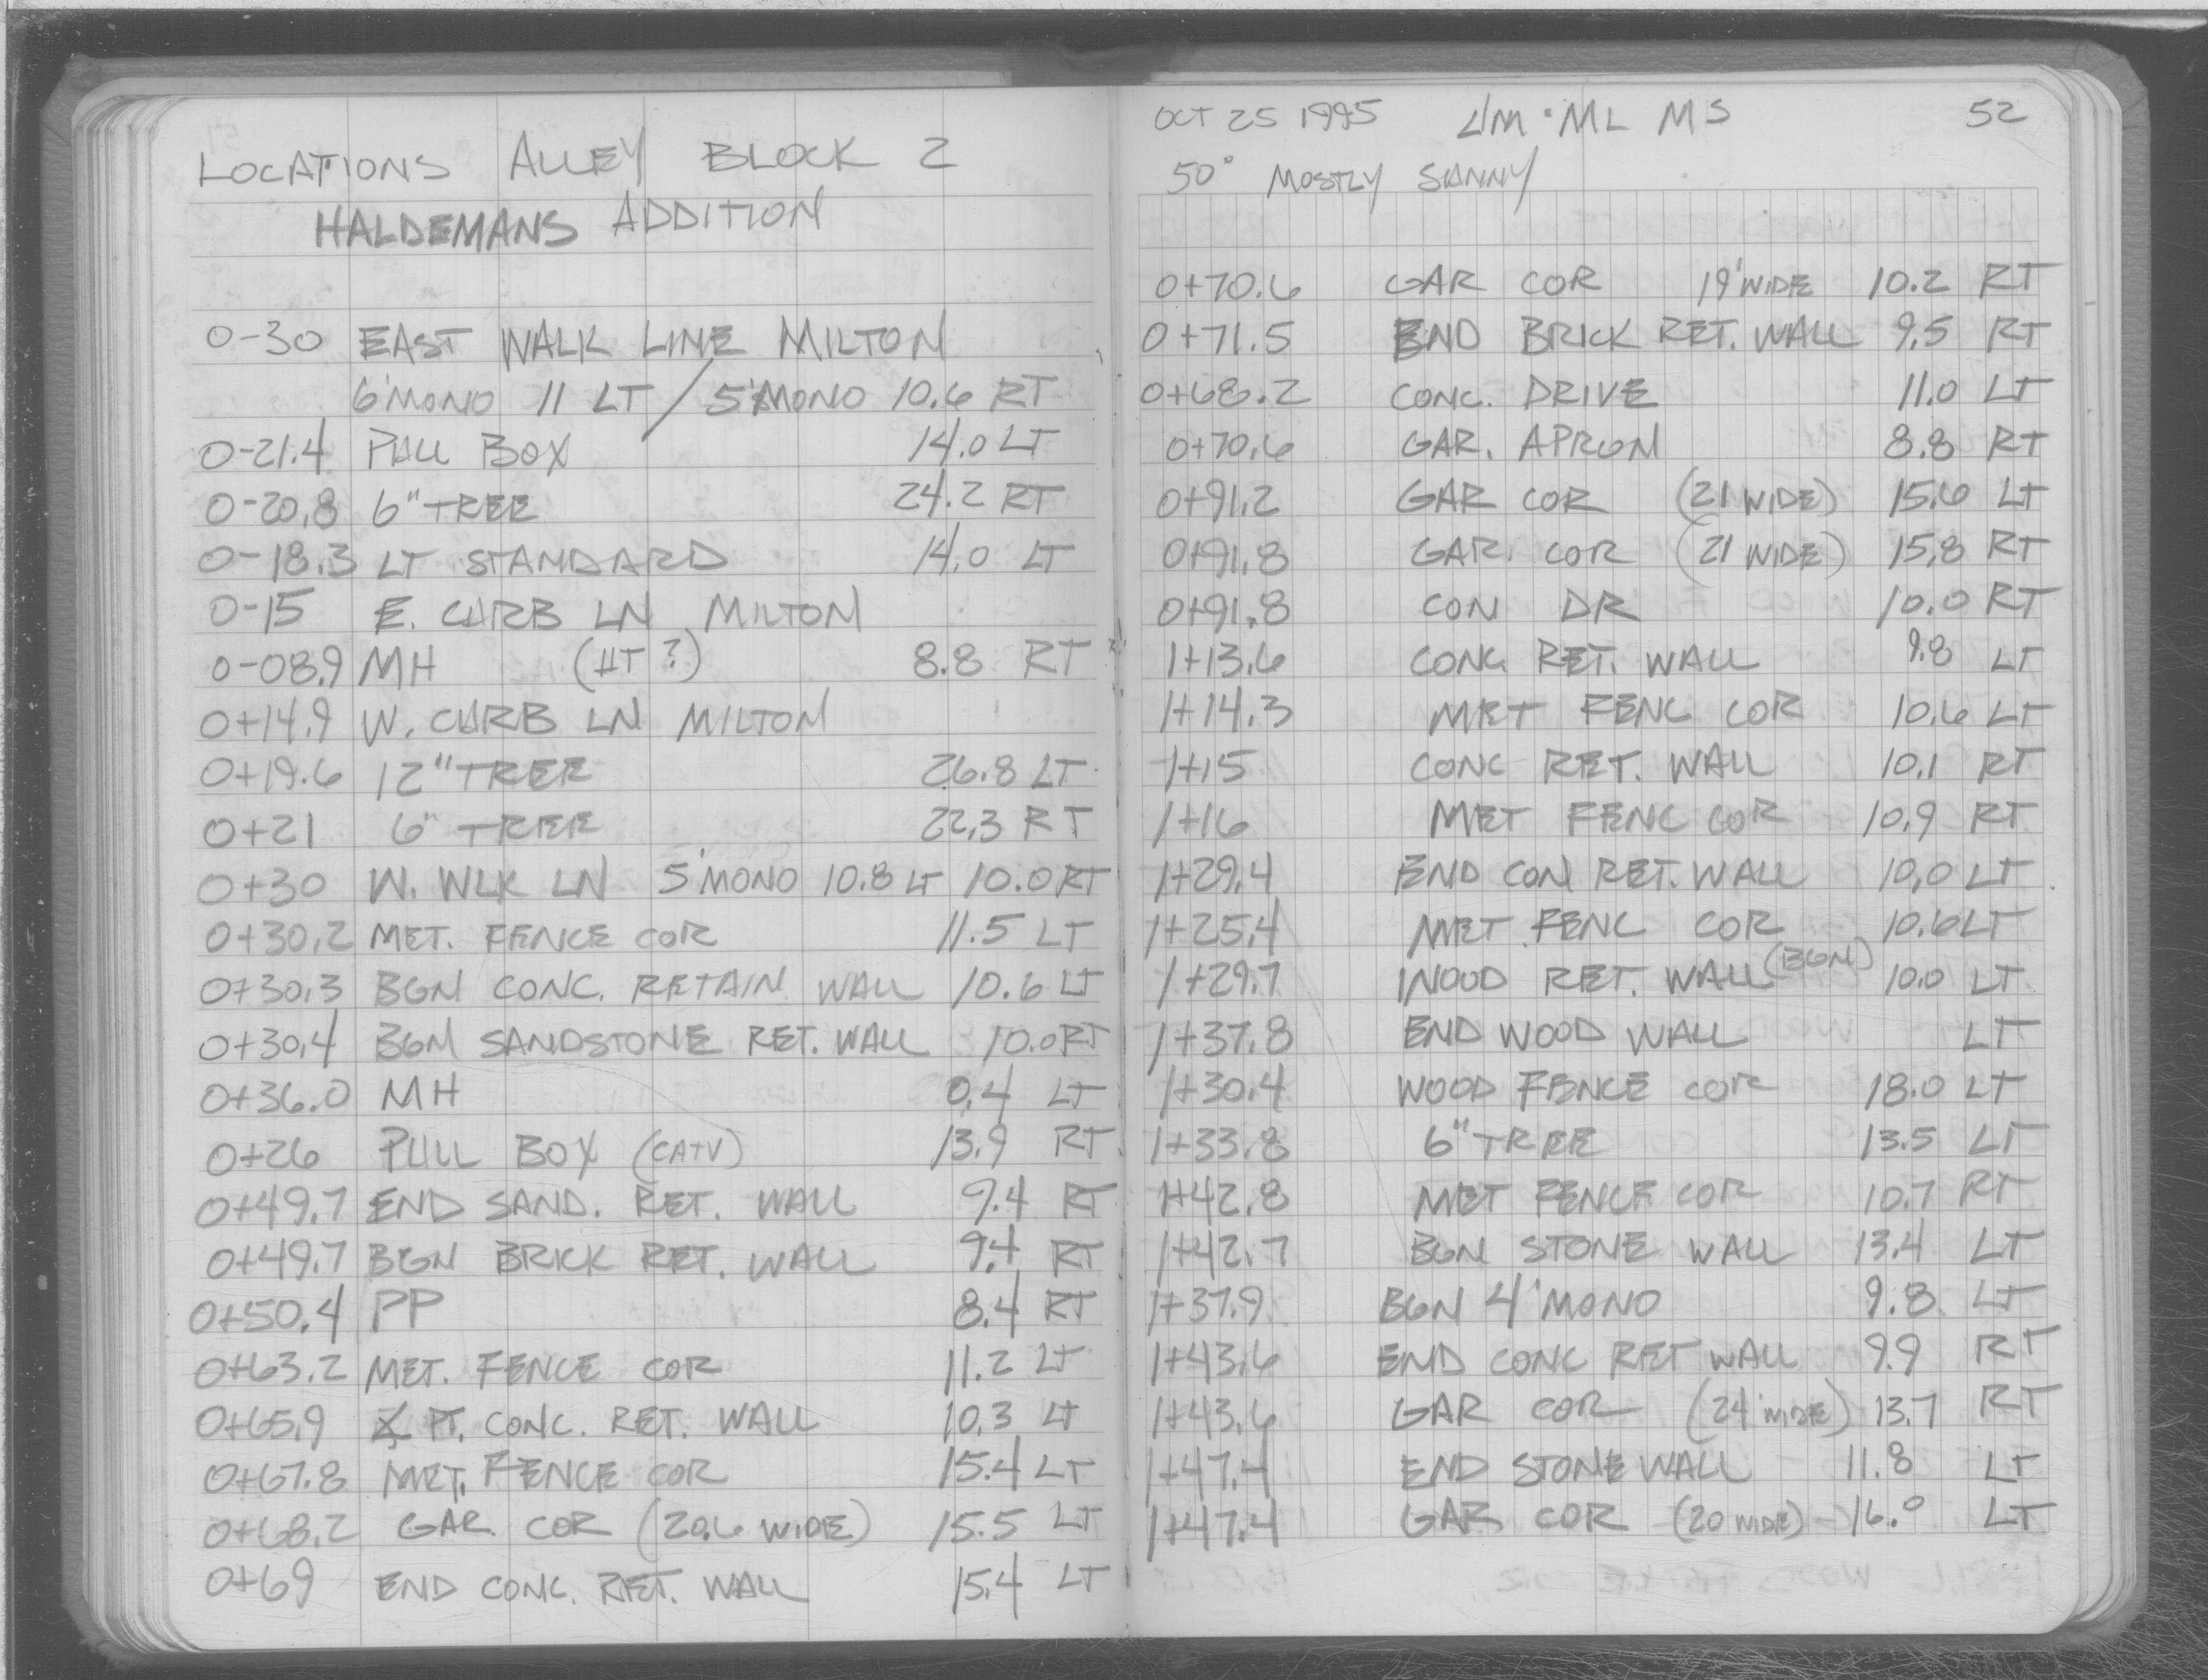 LOCATIONS ALLEY BLOCK 2
HALDEMANS ADDITION
0-30 EAST WALK LINE MILTON
6'MONO 11 LT / 5'MONO 10.6 RT
0-21.4 PULL BOX 14.0 LT
0-20.8 6" TREE 24.2 RT
0-18.3 LT STANDARD 14.0 LT
0-15 E. CURB LN MILTON
0-08.9 MH ( ?) 8.8 RT
0+14.9 W. CURB LN MILTON
0+19.6 12" TREE 26.8 LT
0+21 6" TREE 22.3 RT
0+30 W. WLK LN 5'MONO 10.8 LT 10.0 RT
0+30.2 MET. FENCE COR 11.5 LT
0+30.3 BGN CONC. RETAIN WALL 10.6 LT
0+30.4 BGN SANDSTONE RET. WALL 10.0 RT
0+36.0 MH 0.4 LT
0+26 PULL BOX (CATV) 13.9 RT
0+49.7 END SAND. RET. WALL 9.4 RT
0+49.7 BGN BRICK RET. WALL 9.4 RT
0+50.4 PP 8.4 RT
0+63.2 MET. FENCE COR 11.2 LT
0+65.9 ∠ PT. CONC. RET. WALL 10.3 LT
0+67.8 MET. FENCE COR 15.4 LT
0+68.2 GAR. COR (20.6 WIDE) 15.5 LT
0+69 END CONC. RET. WALL 15.4 LT
OCT 25 1995 ML MS 52
50° MOSTLY SUNNY
0+70.6 GAR COR 19'WIDE 10.2 RT
0+71.5 END BRICK RET. WALL 9.5 RT
0+68.2 CONC. DRIVE 11.0 LT
0+70.6 GAR. APRON 8.8 RT
0+91.2 GAR COR (21 WIDE) 15.6 LT
0+91.8 GAR. COR (21 WIDE) 15.8 RT
0+91.8 CON DR 10.0 RT
1+13.6 CONC. RET. WALL 9.8 LT
1+14.3 MET FENC COR 10.6 LT
1+15 CONC RET. WALL 10.1 RT
1+16 MET FENC COR 10.9 RT
1+29.4 END CON RET. WALL 10.0 LT
1+25.4 MET FENC COR 10.6 LT
1+29.7 WOOD RET. WALL (BGN) 10.0 LT
1+37.8 END WOOD WALL LT
1+30.4 WOOD FENCE COR 18.0 LT
1+33.8 6" TREE 13.5 LT
1+42.8 MET FENCE COR 10.7 RT
1+42.7 BGN STONE WALL 13.4 LT
1+37.9 BGN 4'MONO 9.8 LT
1+43.6 END CONC RET WALL 9.9 RT
1+43.6 GAR COR (24'WIDE) 13.7 RT
1+47.4 END STONE WALL 11.8 LT
1+47.4 GAR COR (20 WIDE) 16.0 LT